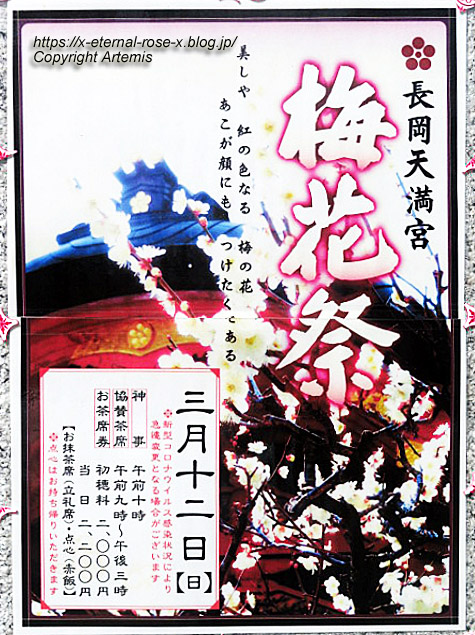 https://x-eternal-rose-x.blog.jp/
Copyright Artemis
長岡天満宮
梅花祭
美しや 紅の色なる 梅の花
あこが顔にも つけたくぞある
三月十二日【日】
※新型コロナウイルス感染状況により
急遽変更となる場合がございます
神事 午前十時
協賛茶席 午前九時〜午後三時
お茶席券 初穂料 二、〇〇〇円
当日 二、二〇〇円
【お抹茶席(立礼席)・点心(赤飯)】
※点心はお持ち帰りいただきます